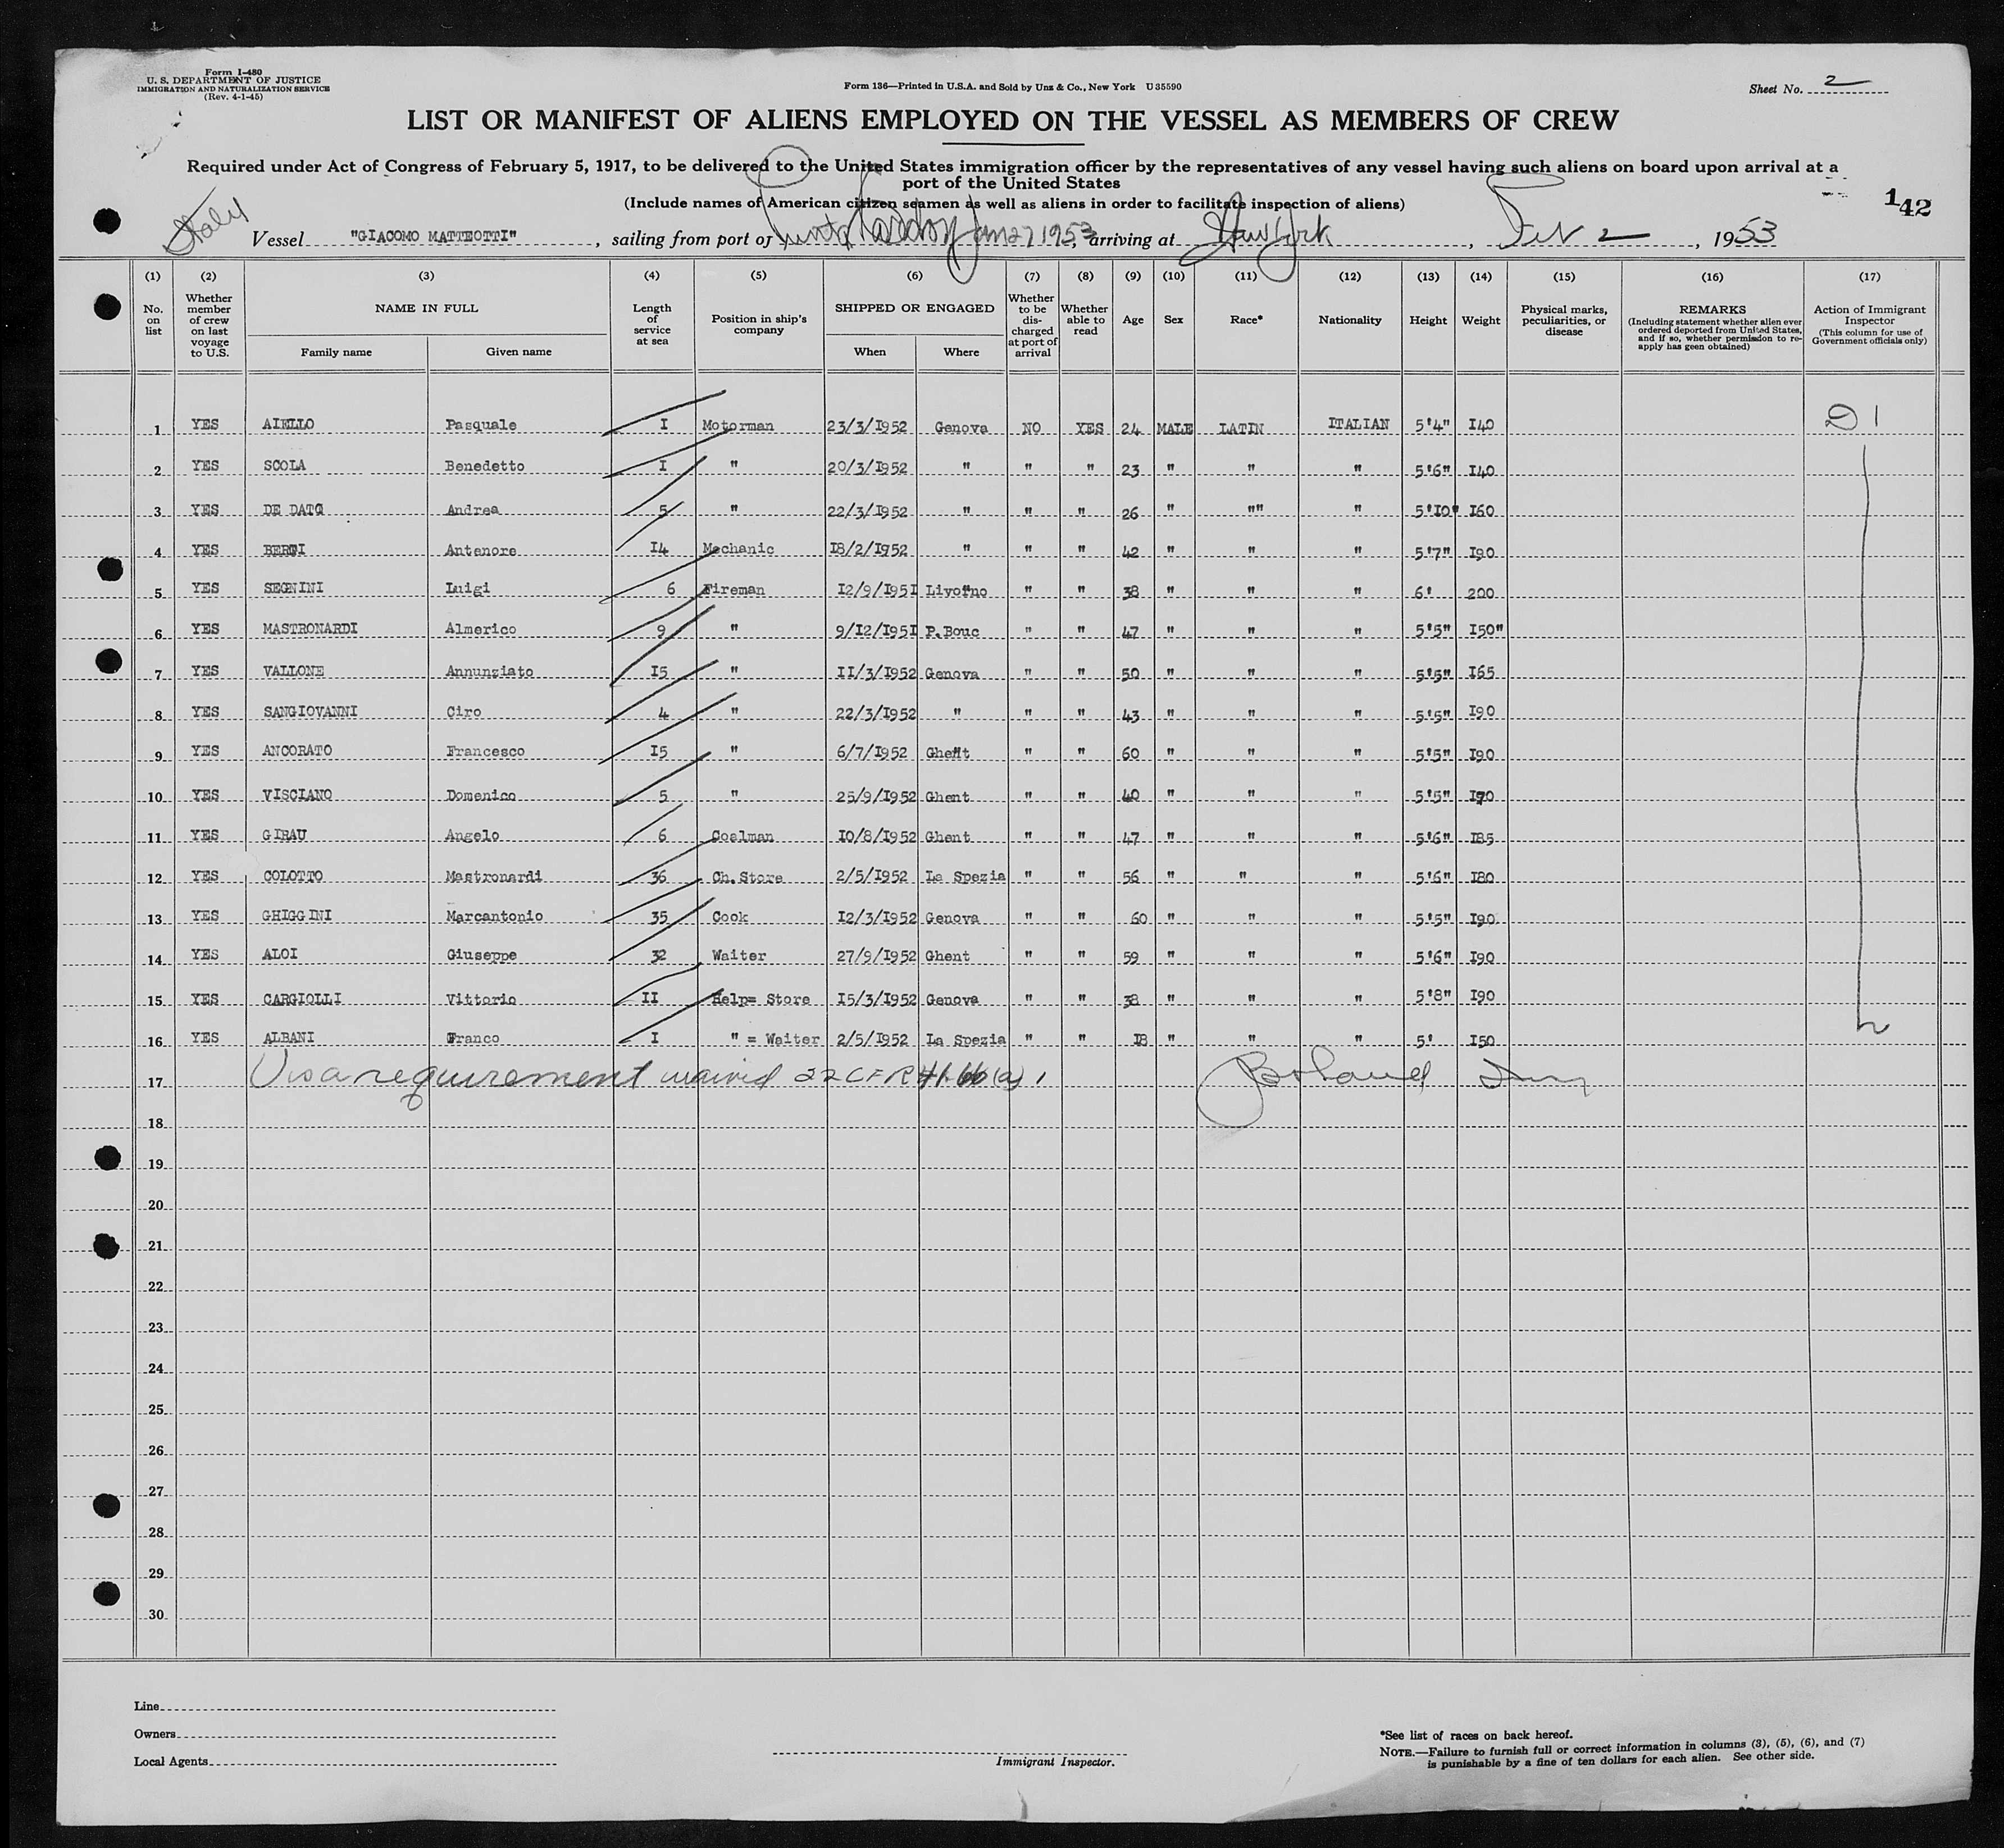 Form I-480
U. S. DEPARTMENT OF JUSTICE
IMMIGRATION AND NATURALIZATION SERVICE
(Rev. 4-1-45)
Form 136—Printed in U.S.A. and Sold by Unz & Co., New York U35590
Sheet No. 2
LIST OR MANIFEST OF ALIENS EMPLOYED ON THE VESSEL AS MEMBERS OF CREW
Required under Act of Congress of February 5, 1917, to be delivered to the United States immigration officer by the representatives of any vessel having such aliens on board upon arrival at a
port of the United States
(Include names of American citizen seamen as well as aliens in order to facilitate inspection of aliens)
142
Italy
Vessel "GIACOMO MATTEOTTI", sailing from port of Jan 27 1953, arriving at New York, Feb 2, 1953
(1) (2) (3) (4) (5) (6) (7) (8) (9) (10) (11) (12) (13) (14) (15) (16) (17)
No. on list Whether member of crew on last voyage to U.S. NAME IN FULL Family name Given name Length of service at sea Position in ship's company SHIPPED OR ENGAGED When Where Whether to be discharged at port of arrival Whether able to read Age Sex Race* Nationality Height Weight Physical marks, peculiarities, or disease REMARKS (Including statement whether alien ever ordered deported from United States, and if so, whether permission to re-apply has geen obtained) Action of Immigrant Inspector (This column for use of Government officials only)
1 YES AIELLO Pasquale I Motorman 23/3/I952 Genova NO YES 24 MALE LATIN ITALIAN 5'4" I40 D 1
2 YES SCOLA Benedetto I " 20/3/I952 " " " 23 " " " 5'6" I40
3 YES DE DATO Andrea 5 " 22/3/I952 " " " 26 " "" " 5'IO" I60
4 YES BERTI Antenore I4 Mechanic I8/2/I952 " " " 42 " " " 5'7" I90
5 YES SEGNINI Luigi 6 Fireman I2/9/I95I Livorno " " 38 " " " 6' 200
6 YES MASTRONARDI Almerico 9 " 9/I2/I95I P.Bouc " " 47 " " " 5'5" I50"
7 YES VALLONE Annunziato I5 " II/3/I952 Genova " " 50 " " " 5'5" I65
8 YES SANGIOVANNI Ciro 4 " 22/3/I952 " " " 43 " " " 5'5" I90
9 YES ANCORATO Francesco I5 " 6/7/I952 Ghent " " 60 " " " 5'5" I90
10 YES VISCIANO Domenico 5 " 25/9/I952 Ghent " " 40 " " " 5'5" I70
11 YES GIRAU Angelo 6 Coalman I0/8/I952 Ghent " " 47 " " " 5'6" I85
12 YES COLOTTO Mastronardi 36 Ch.Store 2/5/I952 La Spezia " " 56 " " " 5'6" I80
13 YES GHIGGINI Marcantonio 35 Cook I2/3/I952 Genova " " 60 " " " 5'5" I90
14 YES ALOI Giuseppe 32 Waiter 27/9/I952 Ghent " " 59 " " " 5'6" I90
15 YES CARGIOLLI Vittorio II Help= Store I5/3/I952 Genova " " 38 " " " 5'8" I90
16 YES ALBANI Franco I " = Waiter 2/5/I952 La Spezia " " I8 " " " 5' I50
17 Visa requirement waived 22 CFR 41.66(a)
18
19
20
21
22
23
24
25
26
27
28
29
30
Line
Owners
Local Agents
Immigrant Inspector.
*See list of races on back hereof.
NOTE.—Failure to furnish full or correct information in columns (3), (5), (6), and (7)
is punishable by a fine of ten dollars for each alien. See other side.